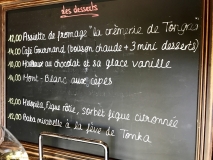 Les desserts
12,00 Assiette de fromage "la crèmerie de
14,00 Café Gourmand (boisson chaude + 3 mini desserts)
11,00 au chocolat & sa glace vanille
14,00 Mont-Blanc aux cèpes
figue rôtie, sorbet figue citronnée
12,00 Baba mirabelle à la fève de Tonka